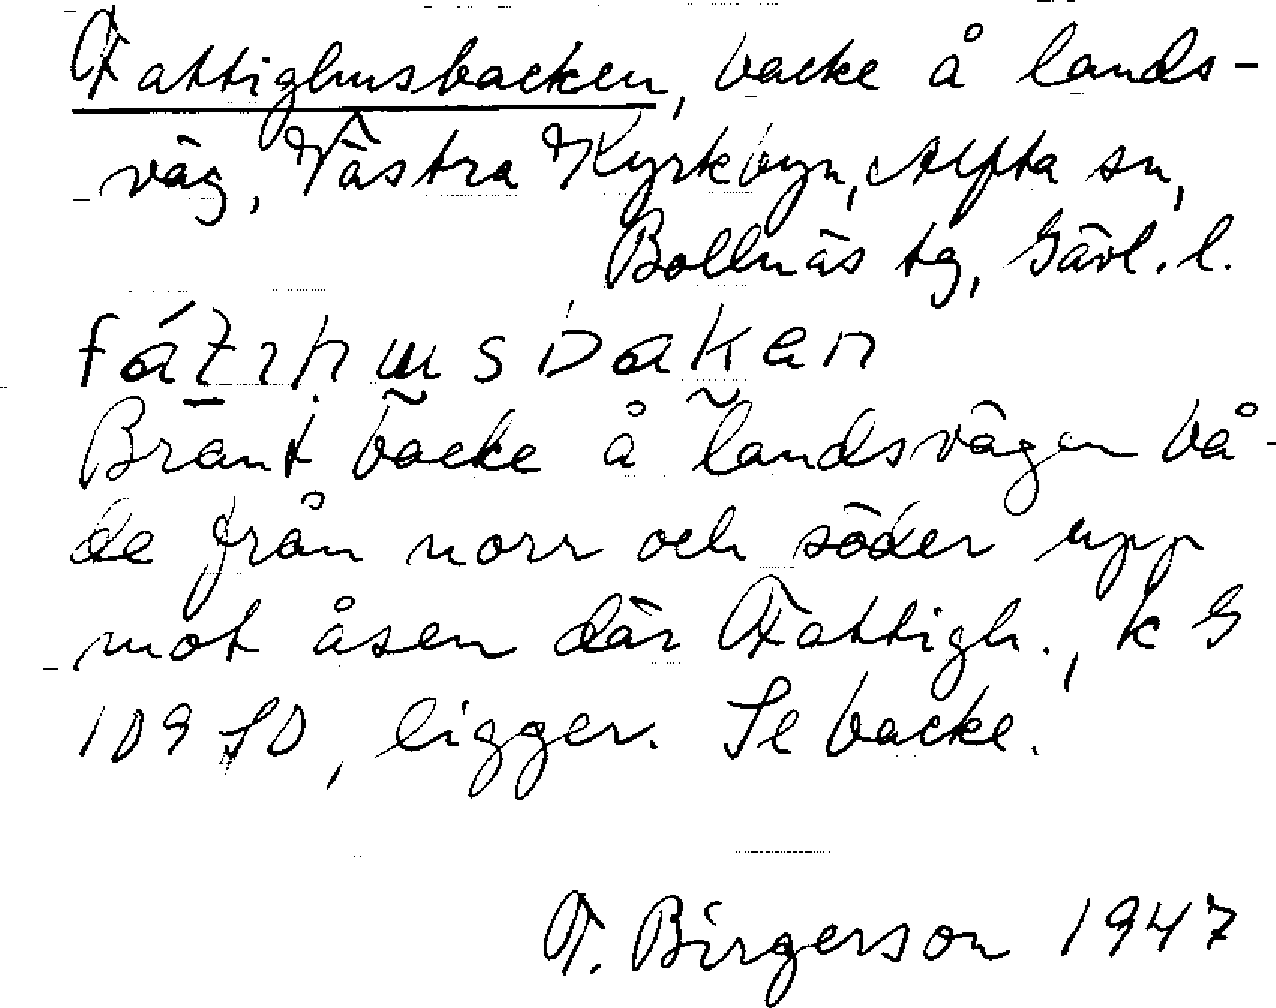 Fattighusbacken, backe å lands-
väg, Västra Kyrkbyn, Alfta sn,
Bollnäs tg, Gävl. l.
Brant backe å landsvägen bå-
de från norr och söder upp
mot åsen där Fattigh., k G
109 SO, ligger. Se backe.
F. Birgerson 1947